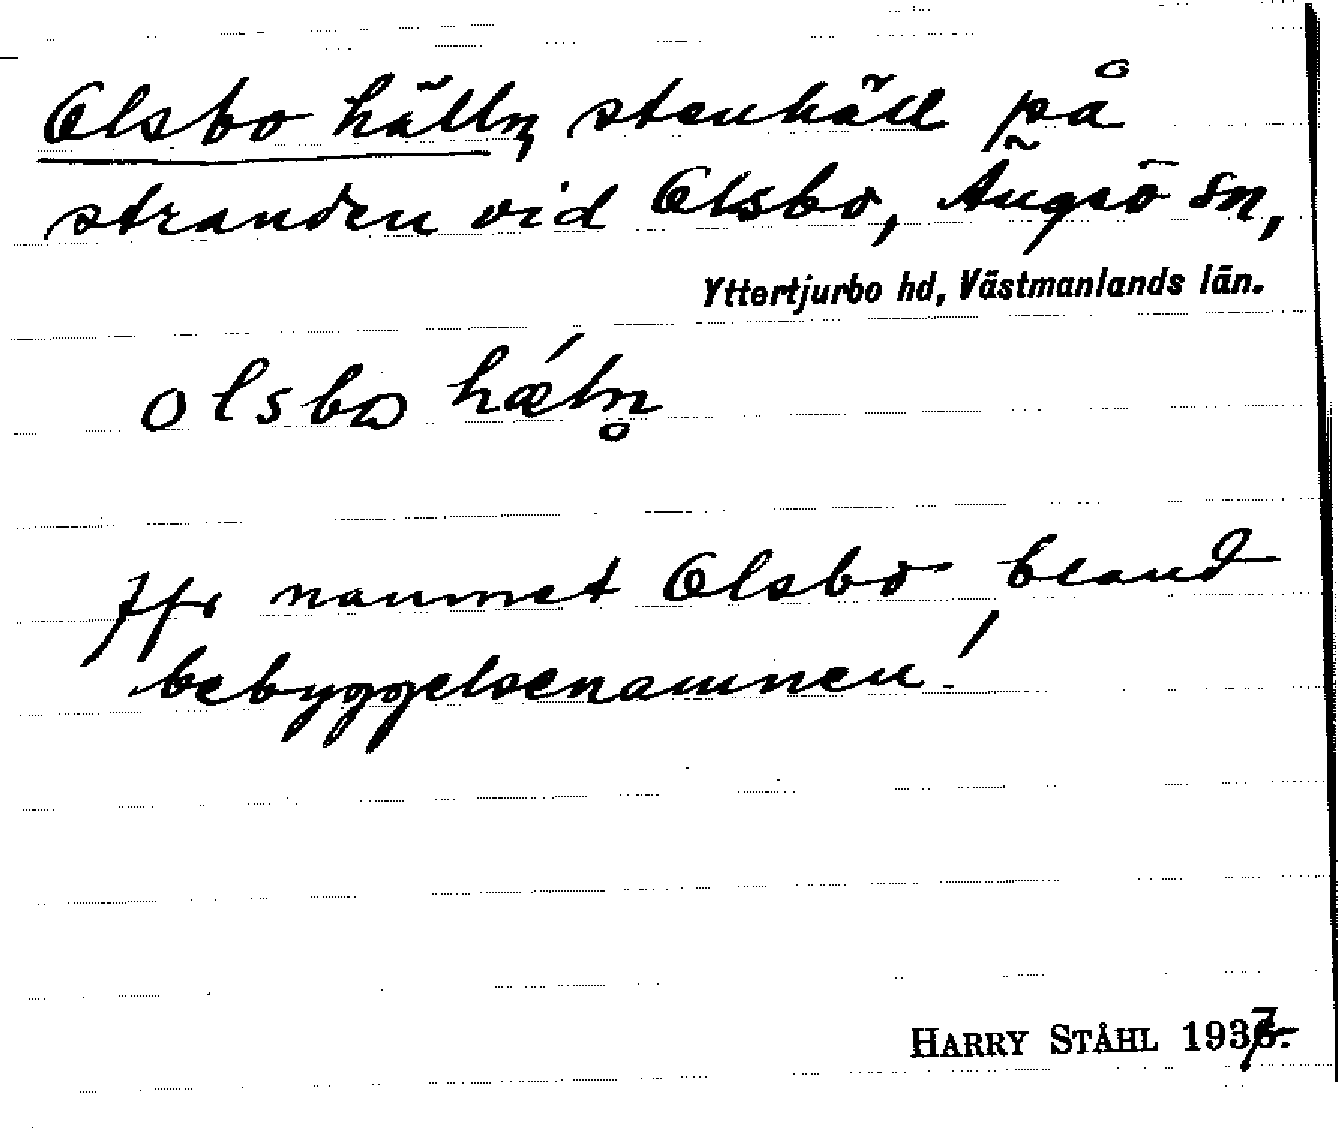 Olsbo hälln, stenhäll på
stranden vid Olsbo, Ängsö sn,
Yttertjurbo hd, Västmanlands län.
olsbo hǽln̥
Jfr namnet Olsbo bland
bebyggelsenamnen!
HARRY STÅHL 1937.